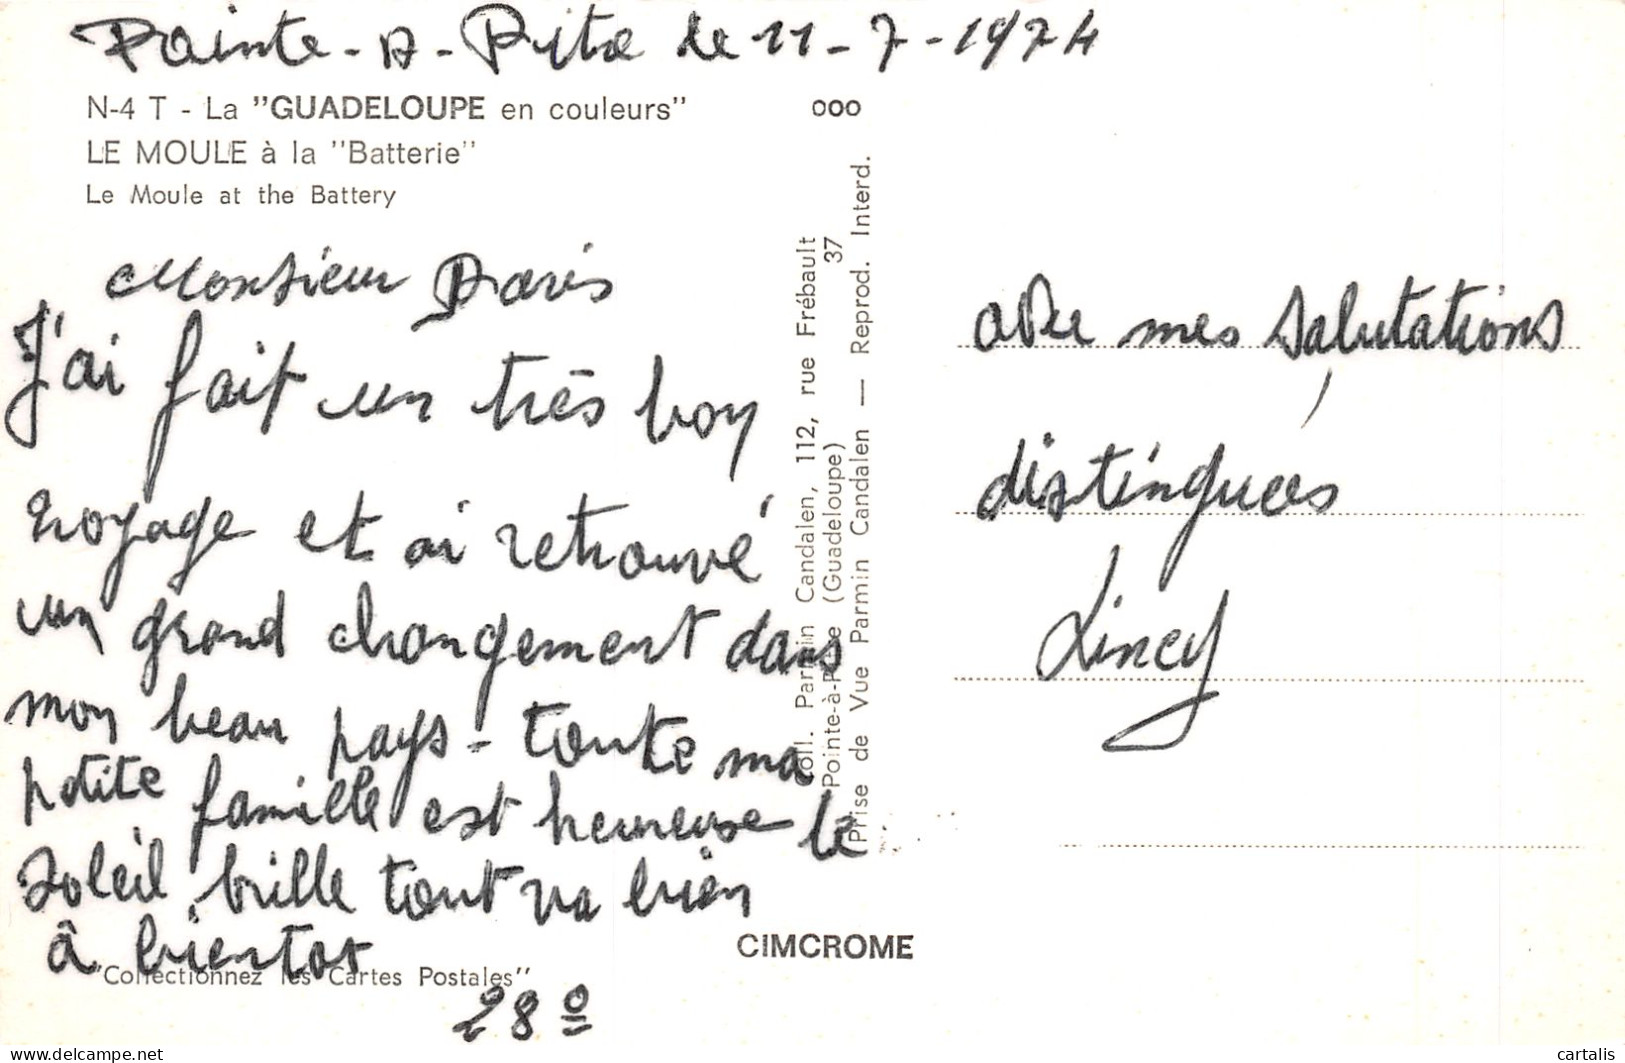 Pointe-A-Pitre le 11-7-1974
N-4 T - La "GUADELOUPE en couleurs"
LE MOULE à la "Batterie"
Le Moule at the Battery
000
Monsieur Davis
J'ai fait un très bon
voyage et ai retrouvé
un grand changement dans
mon beau pays - toute ma
petite famille est heureuse le
soleil brille tout va bien
à bientot
28º
"Collectionnez les Cartes Postales"
CIMCROME
Coll. Parmin Candalen, 112, rue Frébault
Pointe-à-Pitre (Guadeloupe) 37
Prise de Vue Parmin Candalen — Reprod. Interd.
mes salutations
distinguées
Lincy
cartalis
delcampe.net